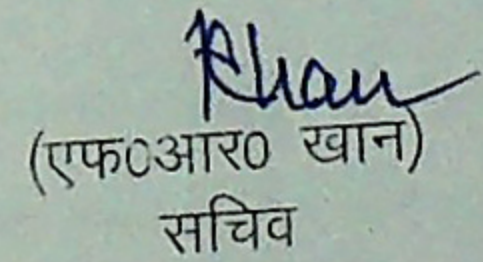 Khan
(एफ०आर० खान)
सचिव